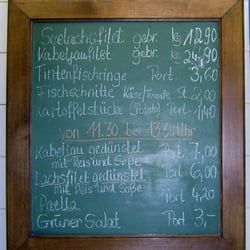 Seelachsfilet gebr. kg 12,90
Kabeljaufilet gebr. kg 24,90
Tintenfischringe Port. 3,60
Fischschnitte Käse/Tomate St. 2,00
Kartoffelstücke (Potato) Port. 1,40
von 11.30 bis 13.30 Uhr
Kabeljau gedünstet Port. 7,00
mit Reis und Soße
Lachsfilet gedünstet Port. 6,00
mit Reis und Soße
Paella Port. 4,20
Grüner Salat Port. 3,-